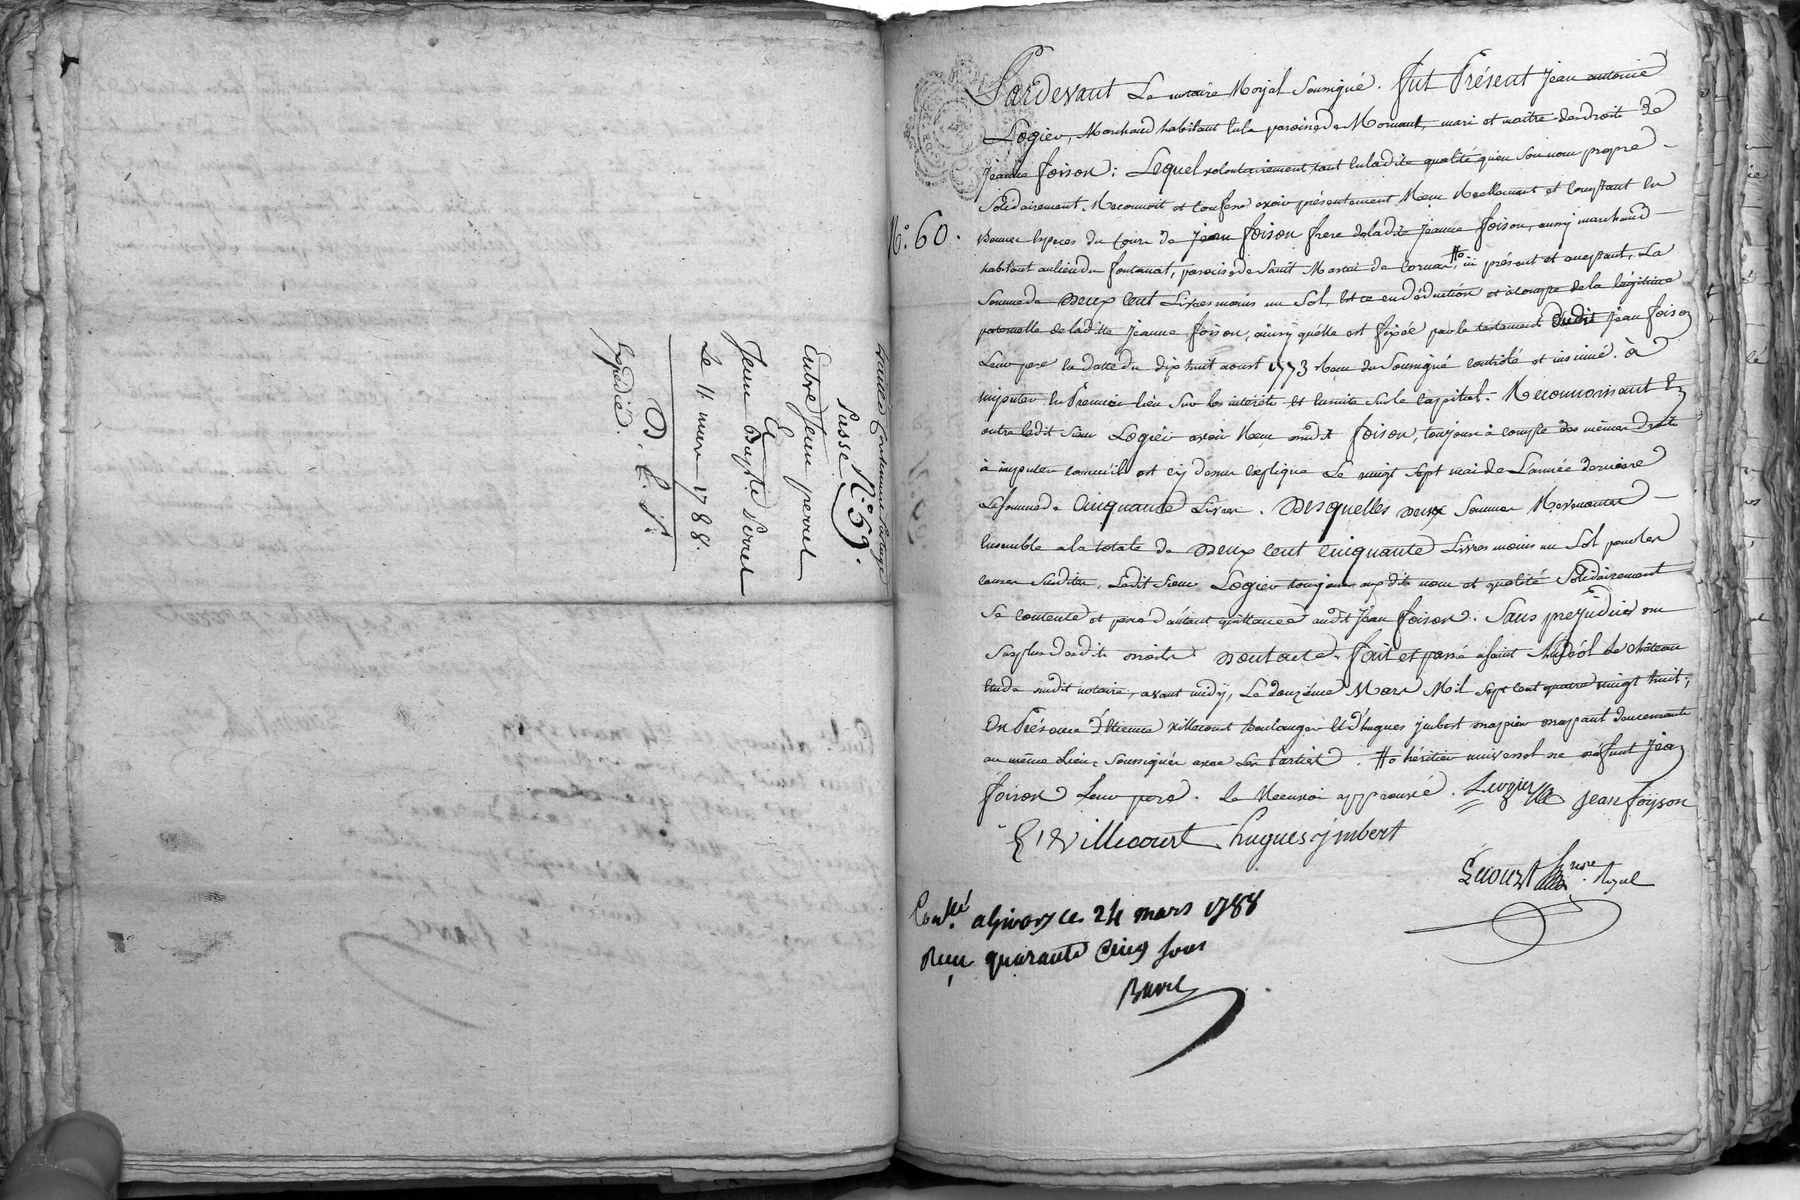 Quittance contenant Partage
Passé N.° 59.
Entre Jean perrel
Et
Jean Baptte Perrel
Le 11 mars 1788.
D. C. S.
Expédié.
N.° 60.
Pardevant Le notaire Royal Soussigné. fut Présent Jean antoine
Logier, Marchand habitant en la paroisse de Mornant, mari et maitre des droits de
Jeanne foison; Lequel volontairement tant en ladite qualité qu'en son nom propre
Solidairement Reconnoit et confesse avoir présentement Reçu Réellement et comptant en
Bonnes Especes du cours de Jean foison frere de ladite Jeanne foison, aussi marchand
habitant au lieu du fontanat, paroisse de Saint Martin de Cornas, ici présent et acceptant, La
Somme de Deux Cent Livres moins un Sol, Et ce en déduction et à compte de la légitime
paternelle de ladite Jeanne foison, ainsy quelle est fixée par le testament dudit Jean foison
Leur pere En datte du dix huit aoust 1773 Reçu du Soussigné controlé et insinué. à
imputer En Premier lieu Sur les intérêts et Ensuite Sur le Capital. Reconnoissant En
outre ledit Sieur Logier avoir Reçu dudit foison, toujours à compte des mêmes droits
à imputer comme il est cy dessus expliqué Le vingt Sept mai de L'année derniere
La Somme de Cinquante Livres. Desquelles Deux Sommes Revenantes
Ensemble a la totale de Deux Cent Cinquante Livres moins un Sol pour les
causes Susdites, Ledit Sieur Logier toujours auxdits nom et qualité Solidairement
Se contente et passe d'autant quittance audit Jean foison. Sans préjudice du
Surplus desdits droits Dont acte. Fait et passé à Saint Andéol Le Château
Etude dudit notaire, avant midy, Le douzième Mars Mil Sept Cent quatre vingt huit;
En Présence d'Etienne Villecourt boulanger Et d'hugues jmbert
au même Lieu, Soussignés avec Les Parties. #o héritier universel de défunt Jean
foison Leur pere. Le Renvoi approuvé. Luogier Jean foijson
E. Villecourt hugues jmbert
not.re Royal
Con.lé a Givors ce 24 mars 1788
Reçu quarante Cinq Sous